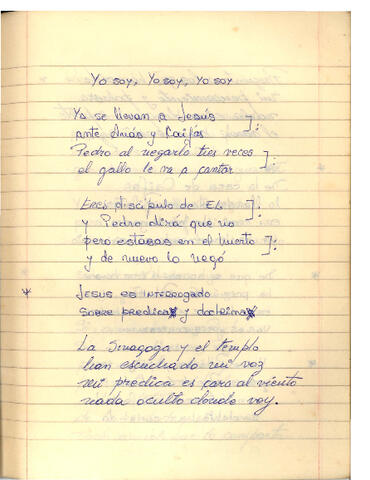 Yo soy, Yo soy, Yo soy
Ya se llevan a Jesús
ante Anás y Caifás
Pedro al negarlo tres veces
el gallo le va a cantar
Eres discípulo de EL
y Pedro dirá que no
pero estabas en el huerto
y de nuevo lo negó
JESUS ES INTERROGADO
Sobre predica y doctrina
La Sinagoga y el templo
han escuchado mi voz
mi predica es cara al viento
nada oculto donde voy.